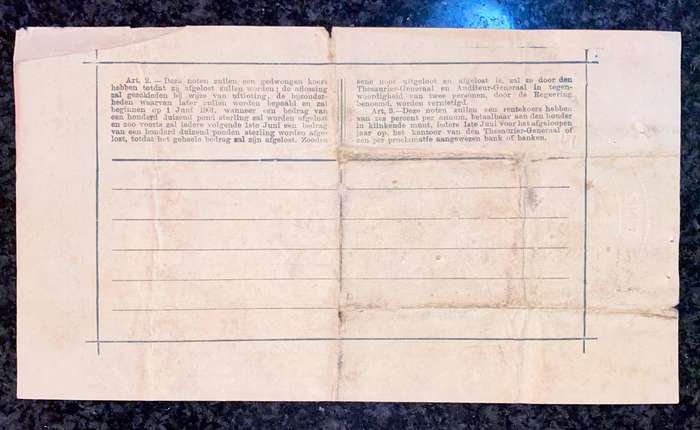 Art. 2. — Deze noten zullen een gedwongen koers
hebben totdat zij afgelost zullen worden; de aflossing
zal geschieden bij wijze van uitloting, de bijzonder-
heden waarvan later zullen worden bepaald en zal
beginnen op 1 Juni 1901, wanneer een bedrag van
een honderd duizend pond sterling zal worden afgelost
en zoo voorts zal iedere volgende 1ste Juni een bedrag
van een honderd duizend ponden sterling worden afge-
lost, totdat het geheele bedrag zal zijn afgelost. Zoodra
eene noot uitgeloot en afgelost is, zal ze door den
Thesaurier-Generaal en Auditeur-Generaal in tegen-
woordigheid van twee personen, door de Regeering
benoemd, worden vernietigd.
Art. 3.—Deze noten zullen een rentekoers hebben
van zes percent per annum, betaalbaar aan den houder
in klinkende munt, iedere 1ste Juni voor het afgeloopen
jaar op het kantoor van den Thesaurier-Generaal of
een per proclamatie aangewezen bank of banken.